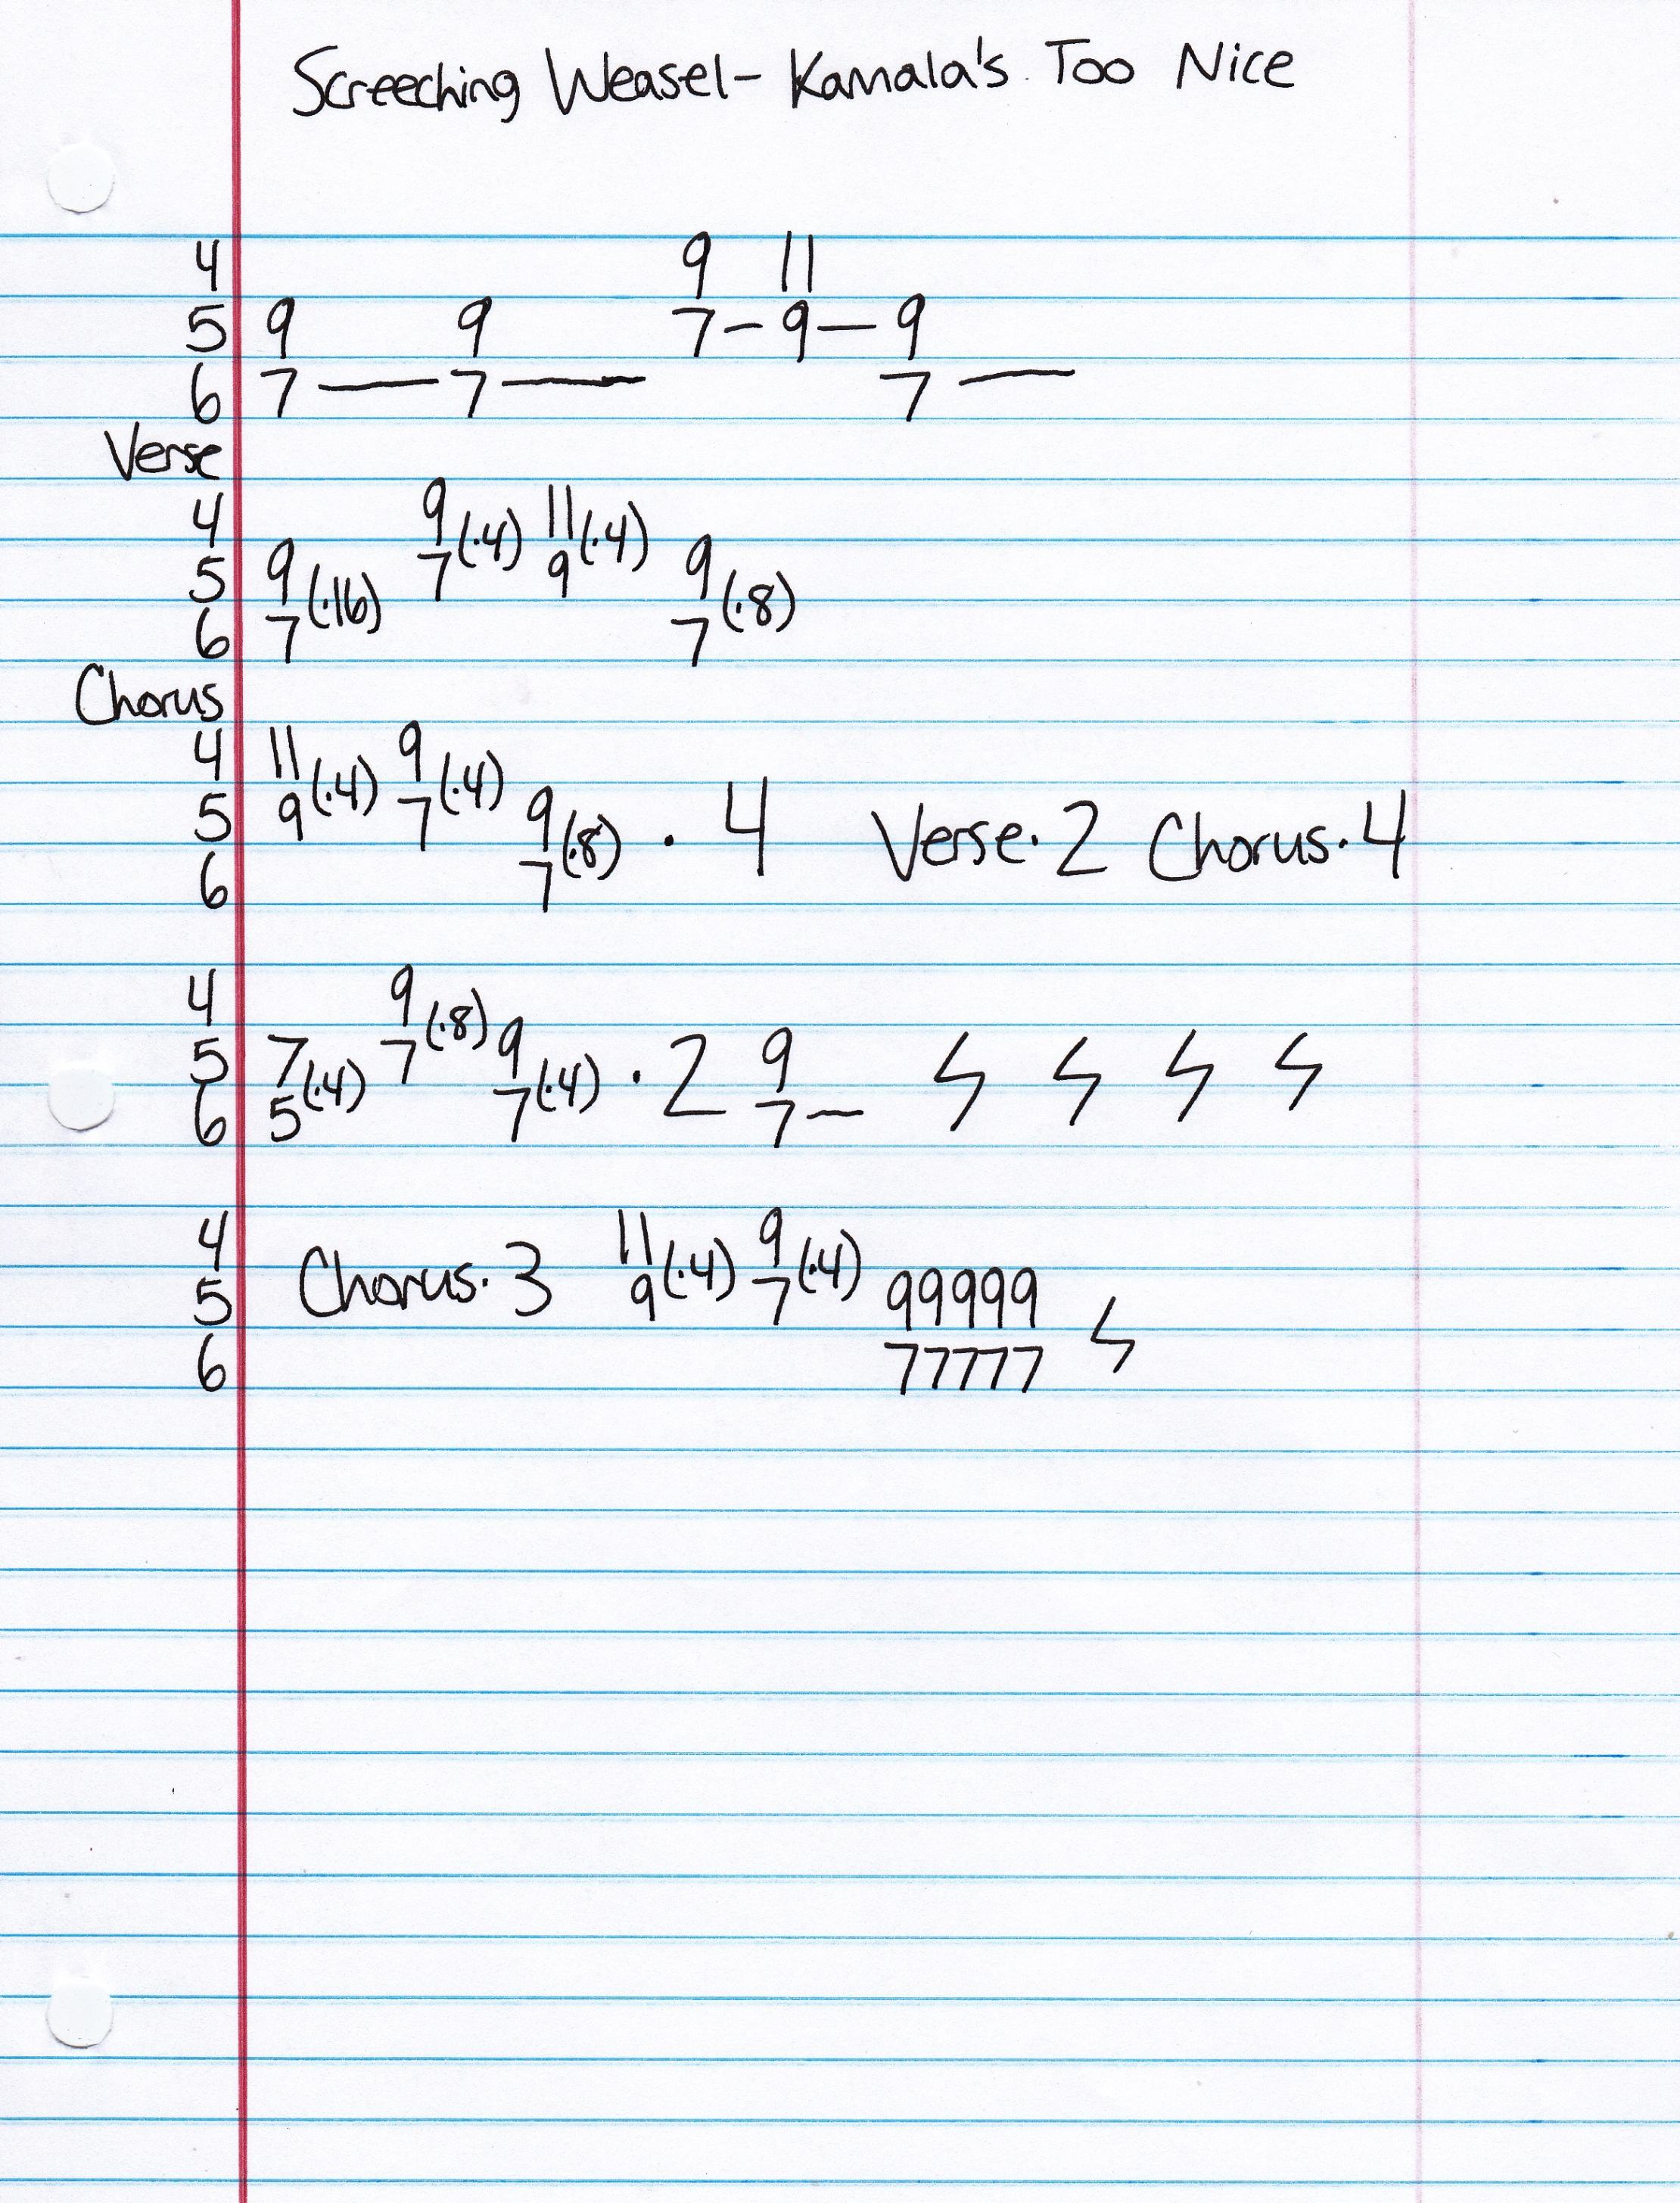 Screeching Weasel- Kamala's Too Nice
4 9 11
5 9 9 7-9-9
6 7—7— 7—
Verse
4 9(·4) 11(·4)
5 9(·16) 7 9 9(·8)
6 7 7
Chorus
4 11(·4) 9(·4)
5 9 7 9(·8) · 4 Verse·2 Chorus·4
6 7
4 9(·8)
5 7(·4) 7 9(·4) · 2 9
6 5 7 7—
4 11(·4) 9(·4)
5 Chorus·3 9 7 99999
6 77777